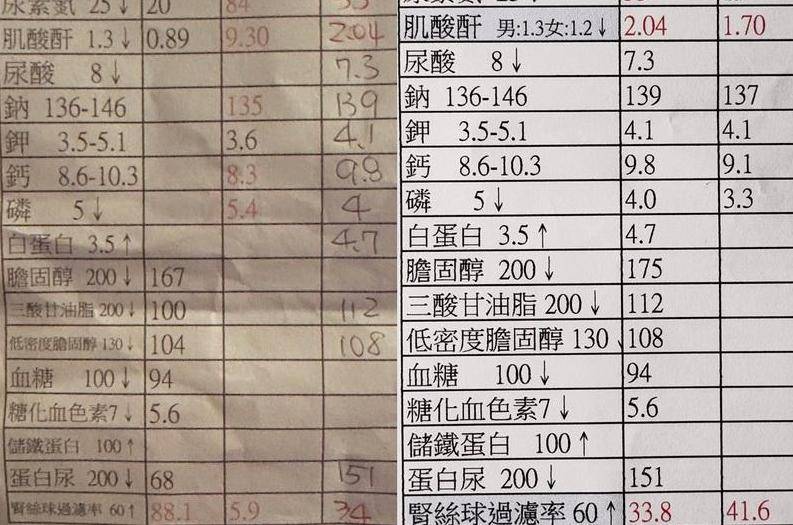 尿素氮 25↓ 20 84
肌酸酐 1.3↓ 0.89 9.30 2.04
尿酸 8↓ 7.3
鈉 136-146 135 139
鉀 3.5-5.1 3.6 4.1
鈣 8.6-10.3 8.3 9.8
磷 5↓ 5.4 4
白蛋白 3.5↑ 4.7
膽固醇 200↓ 167
三酸甘油脂 200↓ 100 112
低密度膽固醇 130↓ 104 108
血糖 100↓ 94
糖化血色素7↓ 5.6
儲鐵蛋白 100↑
蛋白尿 200↓ 68 151
腎絲球過濾率 60↑ 88.1 5.9 34
肌酸酐 男:1.3女:1.2↓ 2.04 1.70
尿酸 8↓ 7.3
鈉 136-146 139 137
鉀 3.5-5.1 4.1 4.1
鈣 8.6-10.3 9.8 9.1
磷 5↓ 4.0 3.3
白蛋白 3.5↑ 4.7
膽固醇 200↓ 175
三酸甘油脂 200↓ 112
低密度膽固醇 130↓ 108
血糖 100↓ 94
糖化血色素7↓ 5.6
儲鐵蛋白 100↑
蛋白尿 200↓ 151
腎絲球過濾率 60↑ 33.8 41.6